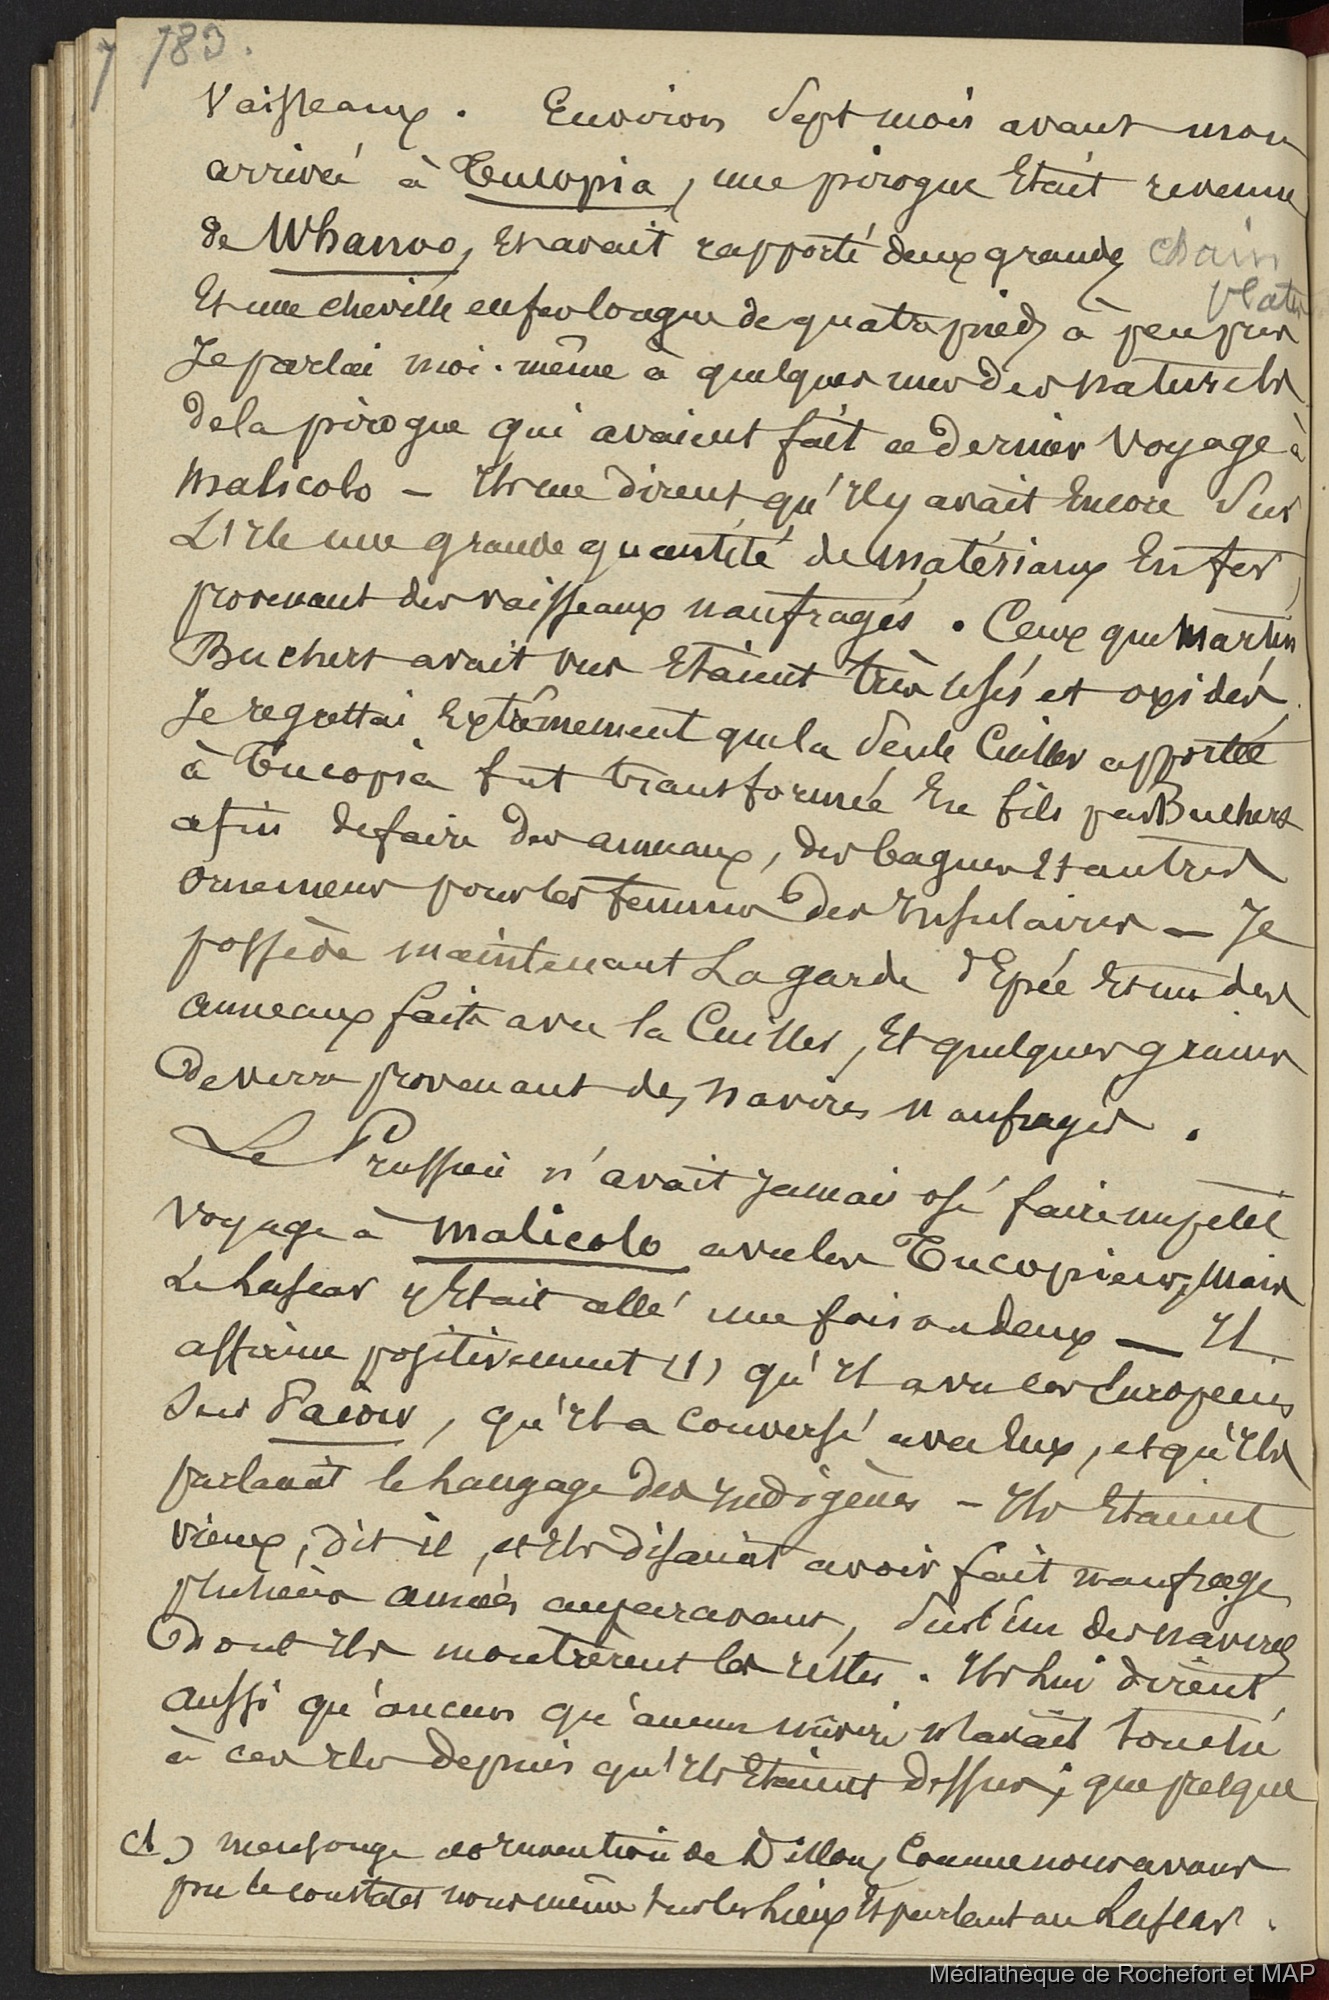 783.
Vaisseaux. Environ Sept mois avant mon
arrivée à Tucopia, une pirogue Etait revenue
de Whanoo, Et avait rapporté deux grandes chain
plates
Et une cheville en fer longue de quatre pieds à peu près
Je parlai moi-même à quelques uns des naturels
de la pirogue qui avaient fait ce dernier voyage à
Malicolo - Ils me dirent qu'Il y avait Encore Sur
L'Ile une grande quantité de matériaux En fer
provenant des vaisseaux naufragés. Ceux que Martin
Buchert avait vus Etaient très usés et oxidés
Je regrettai Extrêmement que la Seule Cuiller apportée
à Tucopia fut transformée En fils par Buchert
afin de faire des anneaux, des bagues Et autres
Ornemens pour les femmes des Insulaires - Je
possède maintenant La garde d'Epée Et un des
anneaux faits avec la Cuiller, Et quelques grains
De verre provenant des navires naufragés.
Le Prussien n'avait Jamais osé faire un petit
Voyage à Malicolo avec les Tucopiens, Mais
Le Lascar y Etait allé une fois ou deux - Il
affirme positivement (1) qu'Il a vu les Européens
Sur Païow, qu'Il a Conversé avec Eux, et qu'Ils
parlaient le Langage des Indigènes - Ils Etaient
vieux, dit il, et Ils disaient avoir fait naufrage
plusieurs années auparavant, Sur l'un des navires
Dont Ils montrèrent les restes. Ils Lui dirent
aussi qu'aucun qu'aucun navire n'avait touché
à ces Iles depuis qu'Ils Etaient dessus; que presque
(1) mensonge de Dillon, Comme nous avons
pu le constater nous même sur les Lieux Et parlant au Lascar.
Médiathèque de Rochefort et MAP